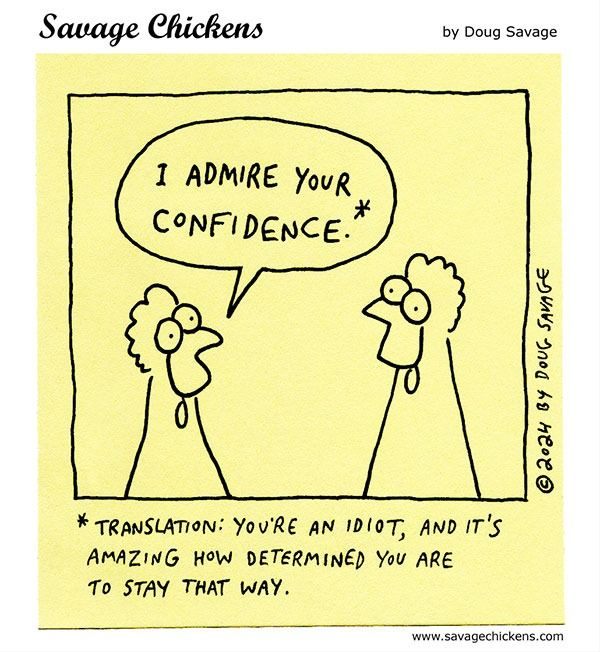 Savage Chickens
by Doug Savage
I ADMIRE YOUR
CONFIDENCE.*
© 2024 BY DOUG SAVAGE
* TRANSLATION: YOU'RE AN IDIOT, AND IT'S
AMAZING HOW DETERMINED YOU ARE
TO STAY THAT WAY.
www.savagechickens.com